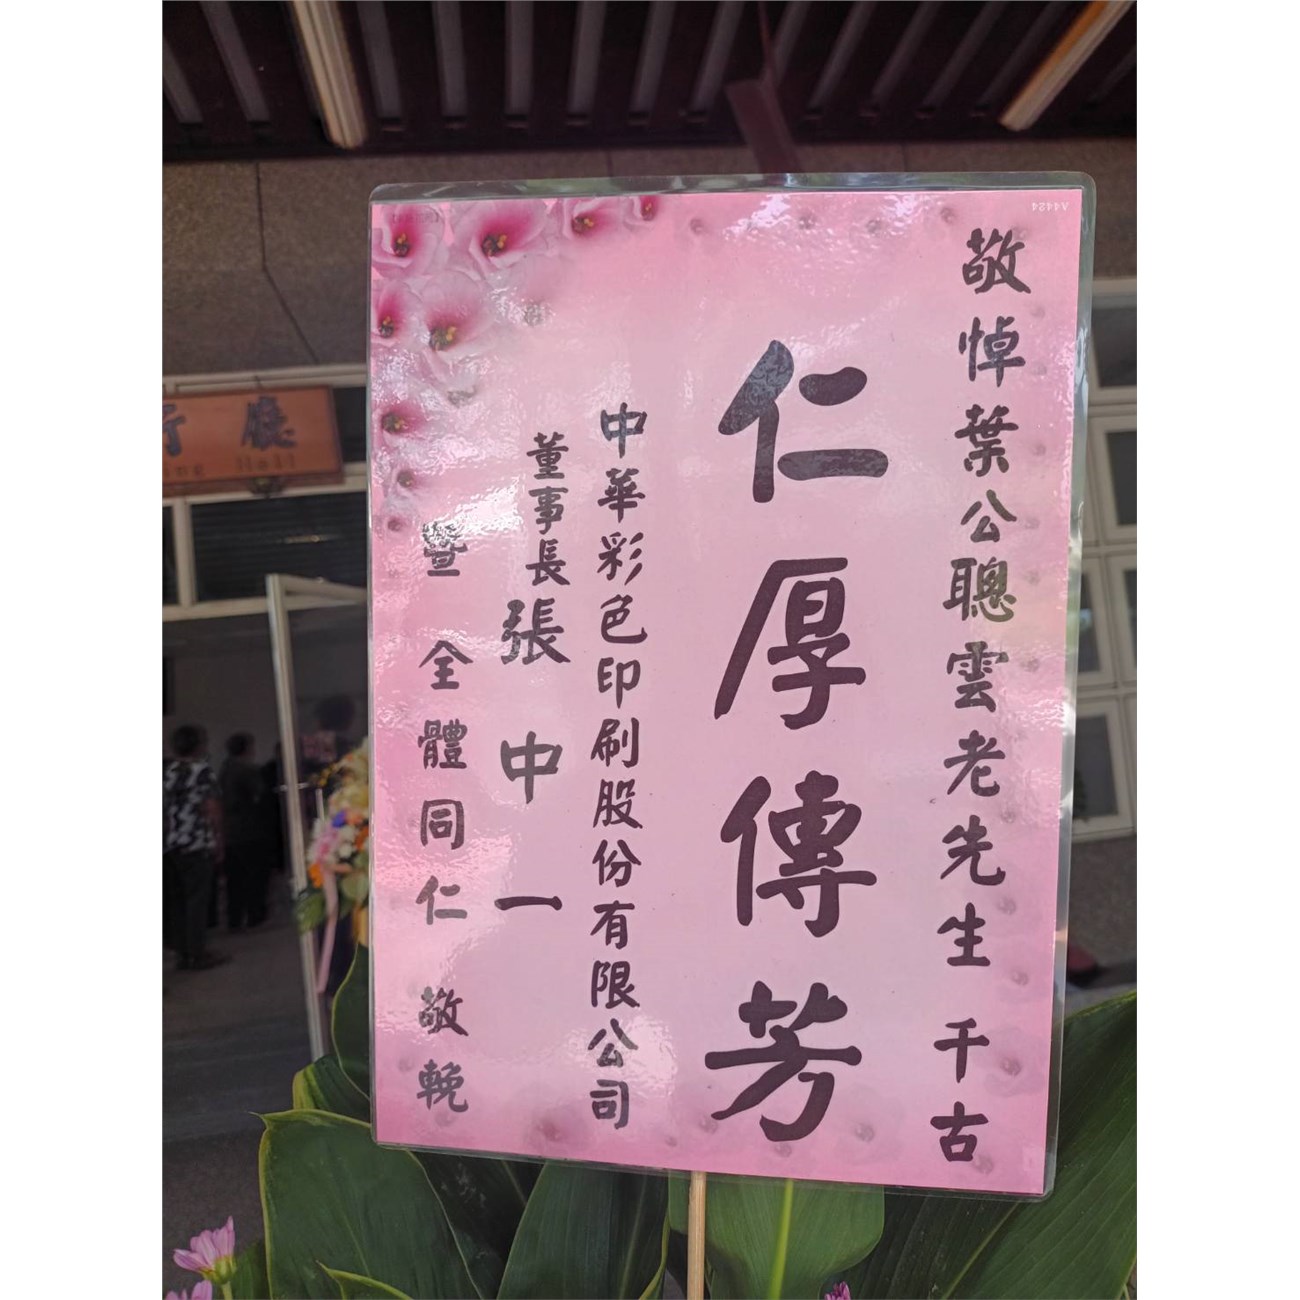 敬悼葉公聰雲老先生 千古
仁厚傳芳
中華彩色印刷股份有限公司
董事長張中一
暨 全體同仁 敬輓
廳
Hall
A4424